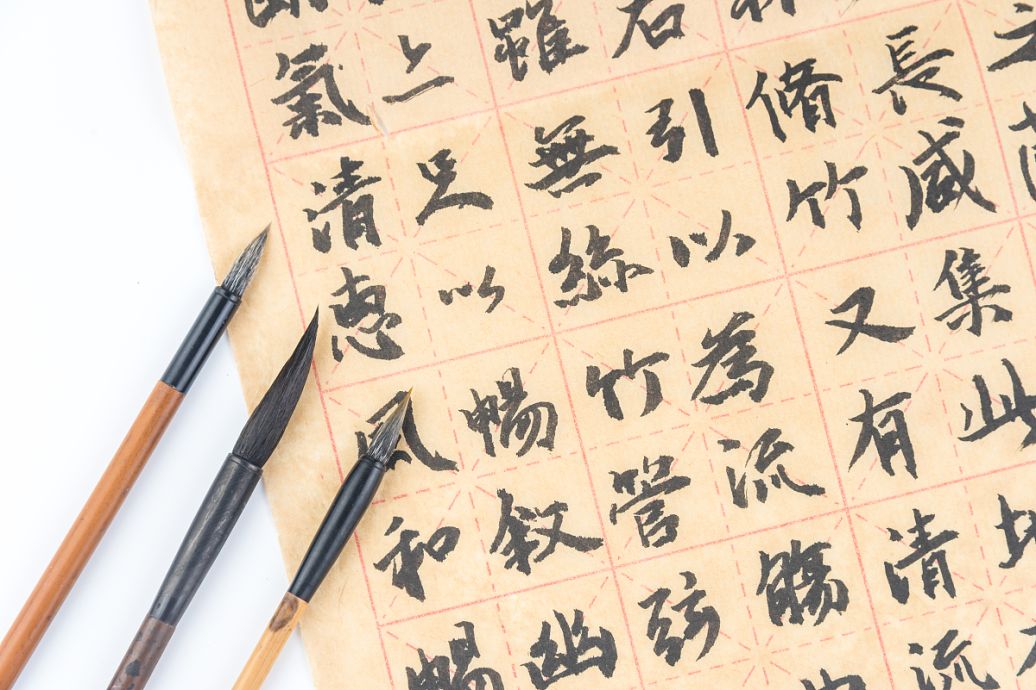 長咸集此
脩竹又有清流
右引以為流觴
雖無絲竹管弦
上足以暢敘幽
氣清惠風和暢